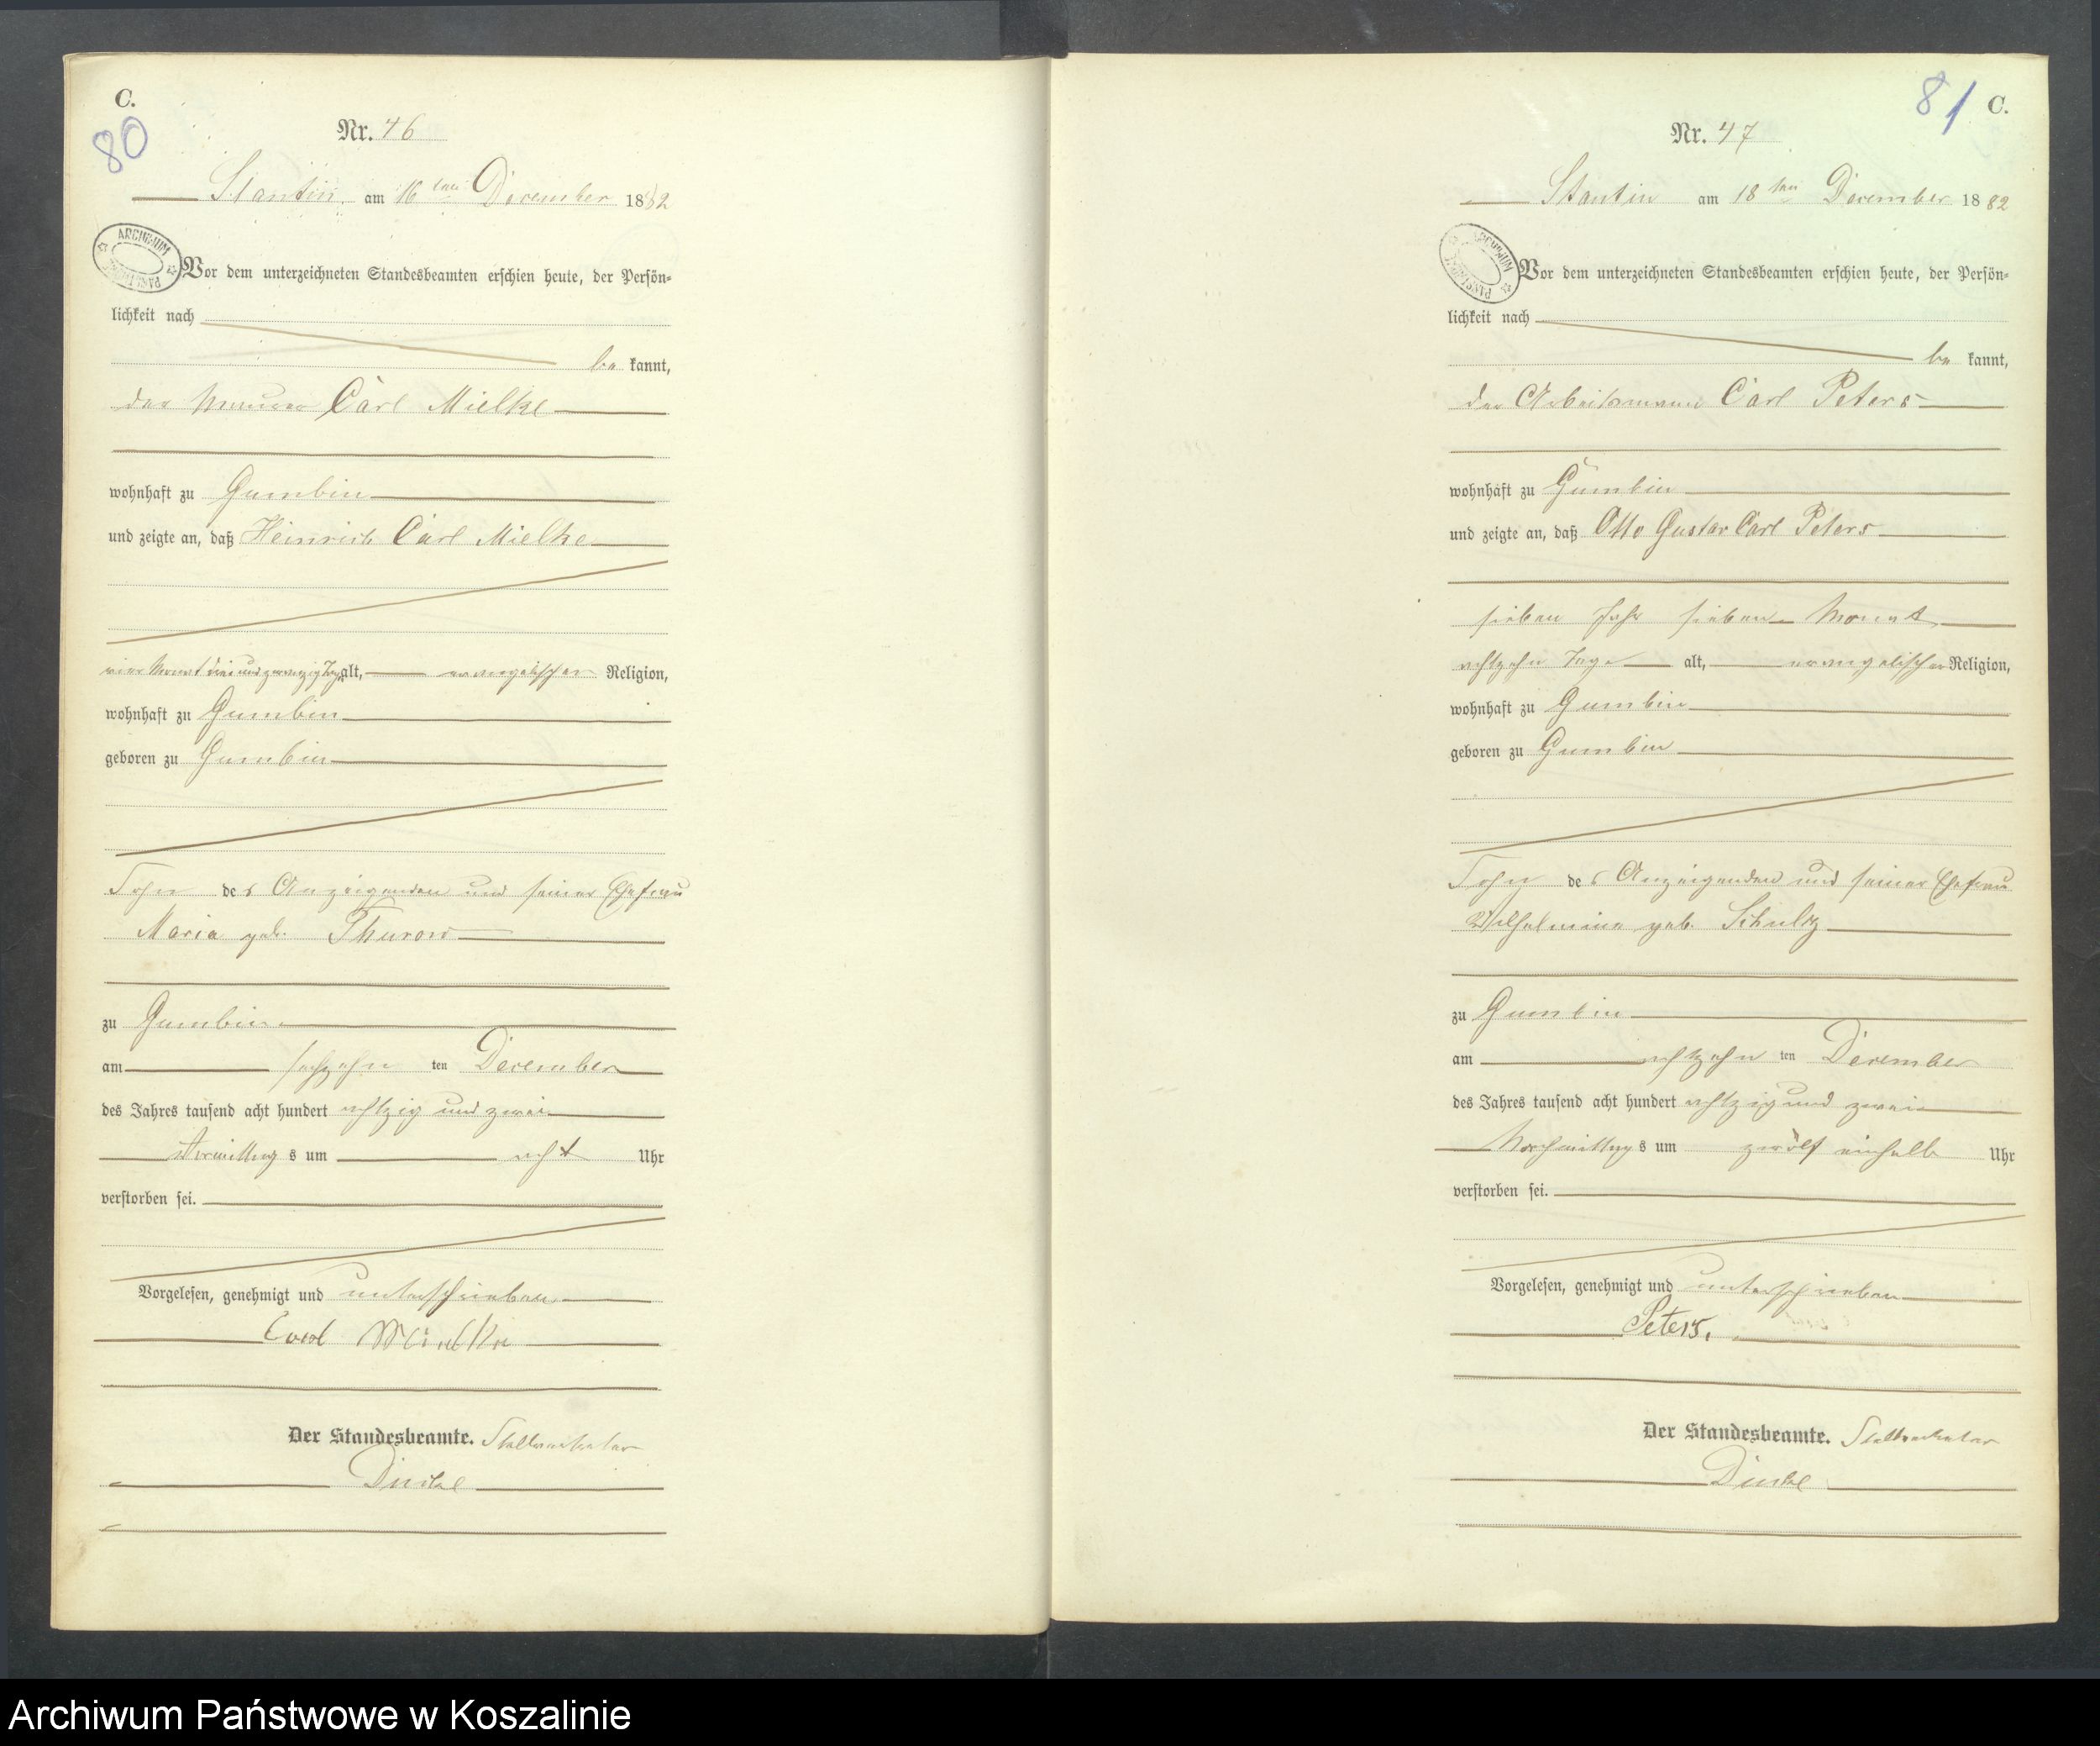 C.
80
Nr. 46
Stantin am 16ten December 1882
ARCHIWUM
Vor dem unterzeichneten Standesbeamten erschien heute, der Persön-
lichkeit nach
be kannt,
der Maurer Carl Mielke
wohnhaft zu Gumbin
und zeigte an, daß Heinrich Carl Mielke
Monat drei und zwanzig Tage alt, evangelischer Religion,
wohnhaft zu Gumbin
geboren zu Gumbin
Sohn des Anzeigenden und seiner Ehefrau
Maria geb. Thurow
zu Gumbin
am sechzehn ten December
des Jahres tausend acht hundert achtzig und zwei
Vormittags um acht Uhr
verstorben sei.
Vorgelesen, genehmigt und unterschrieben
Carl Mielke
Der Standesbeamte. Stellvertreter
81 C.
Nr. 47
Stantin am 18ten December 1882
ARCHIWUM
Vor dem unterzeichneten Standesbeamten erschien heute, der Persön-
lichkeit nach
be kannt,
der Arbeitsmann Carl Peters
wohnhaft zu Gumbin
und zeigte an, daß Otto Gustav Carl Peters
sieben Jahr sieben Monat
achtzehn Tage alt, evangelischer Religion,
wohnhaft zu Gumbin
geboren zu Gumbin
Sohn des Anzeigenden und seiner Ehefrau
Wilhelmine geb. Schultz
zu Gumbin
am achtzehn ten December
des Jahres tausend acht hundert achtzig und zwei
Nachmittags um zwölf einhalb Uhr
verstorben sei.
Vorgelesen, genehmigt und unterschrieben
Peters.
Der Standesbeamte. Stellvertreter
Archiwum Państwowe w Koszalinie